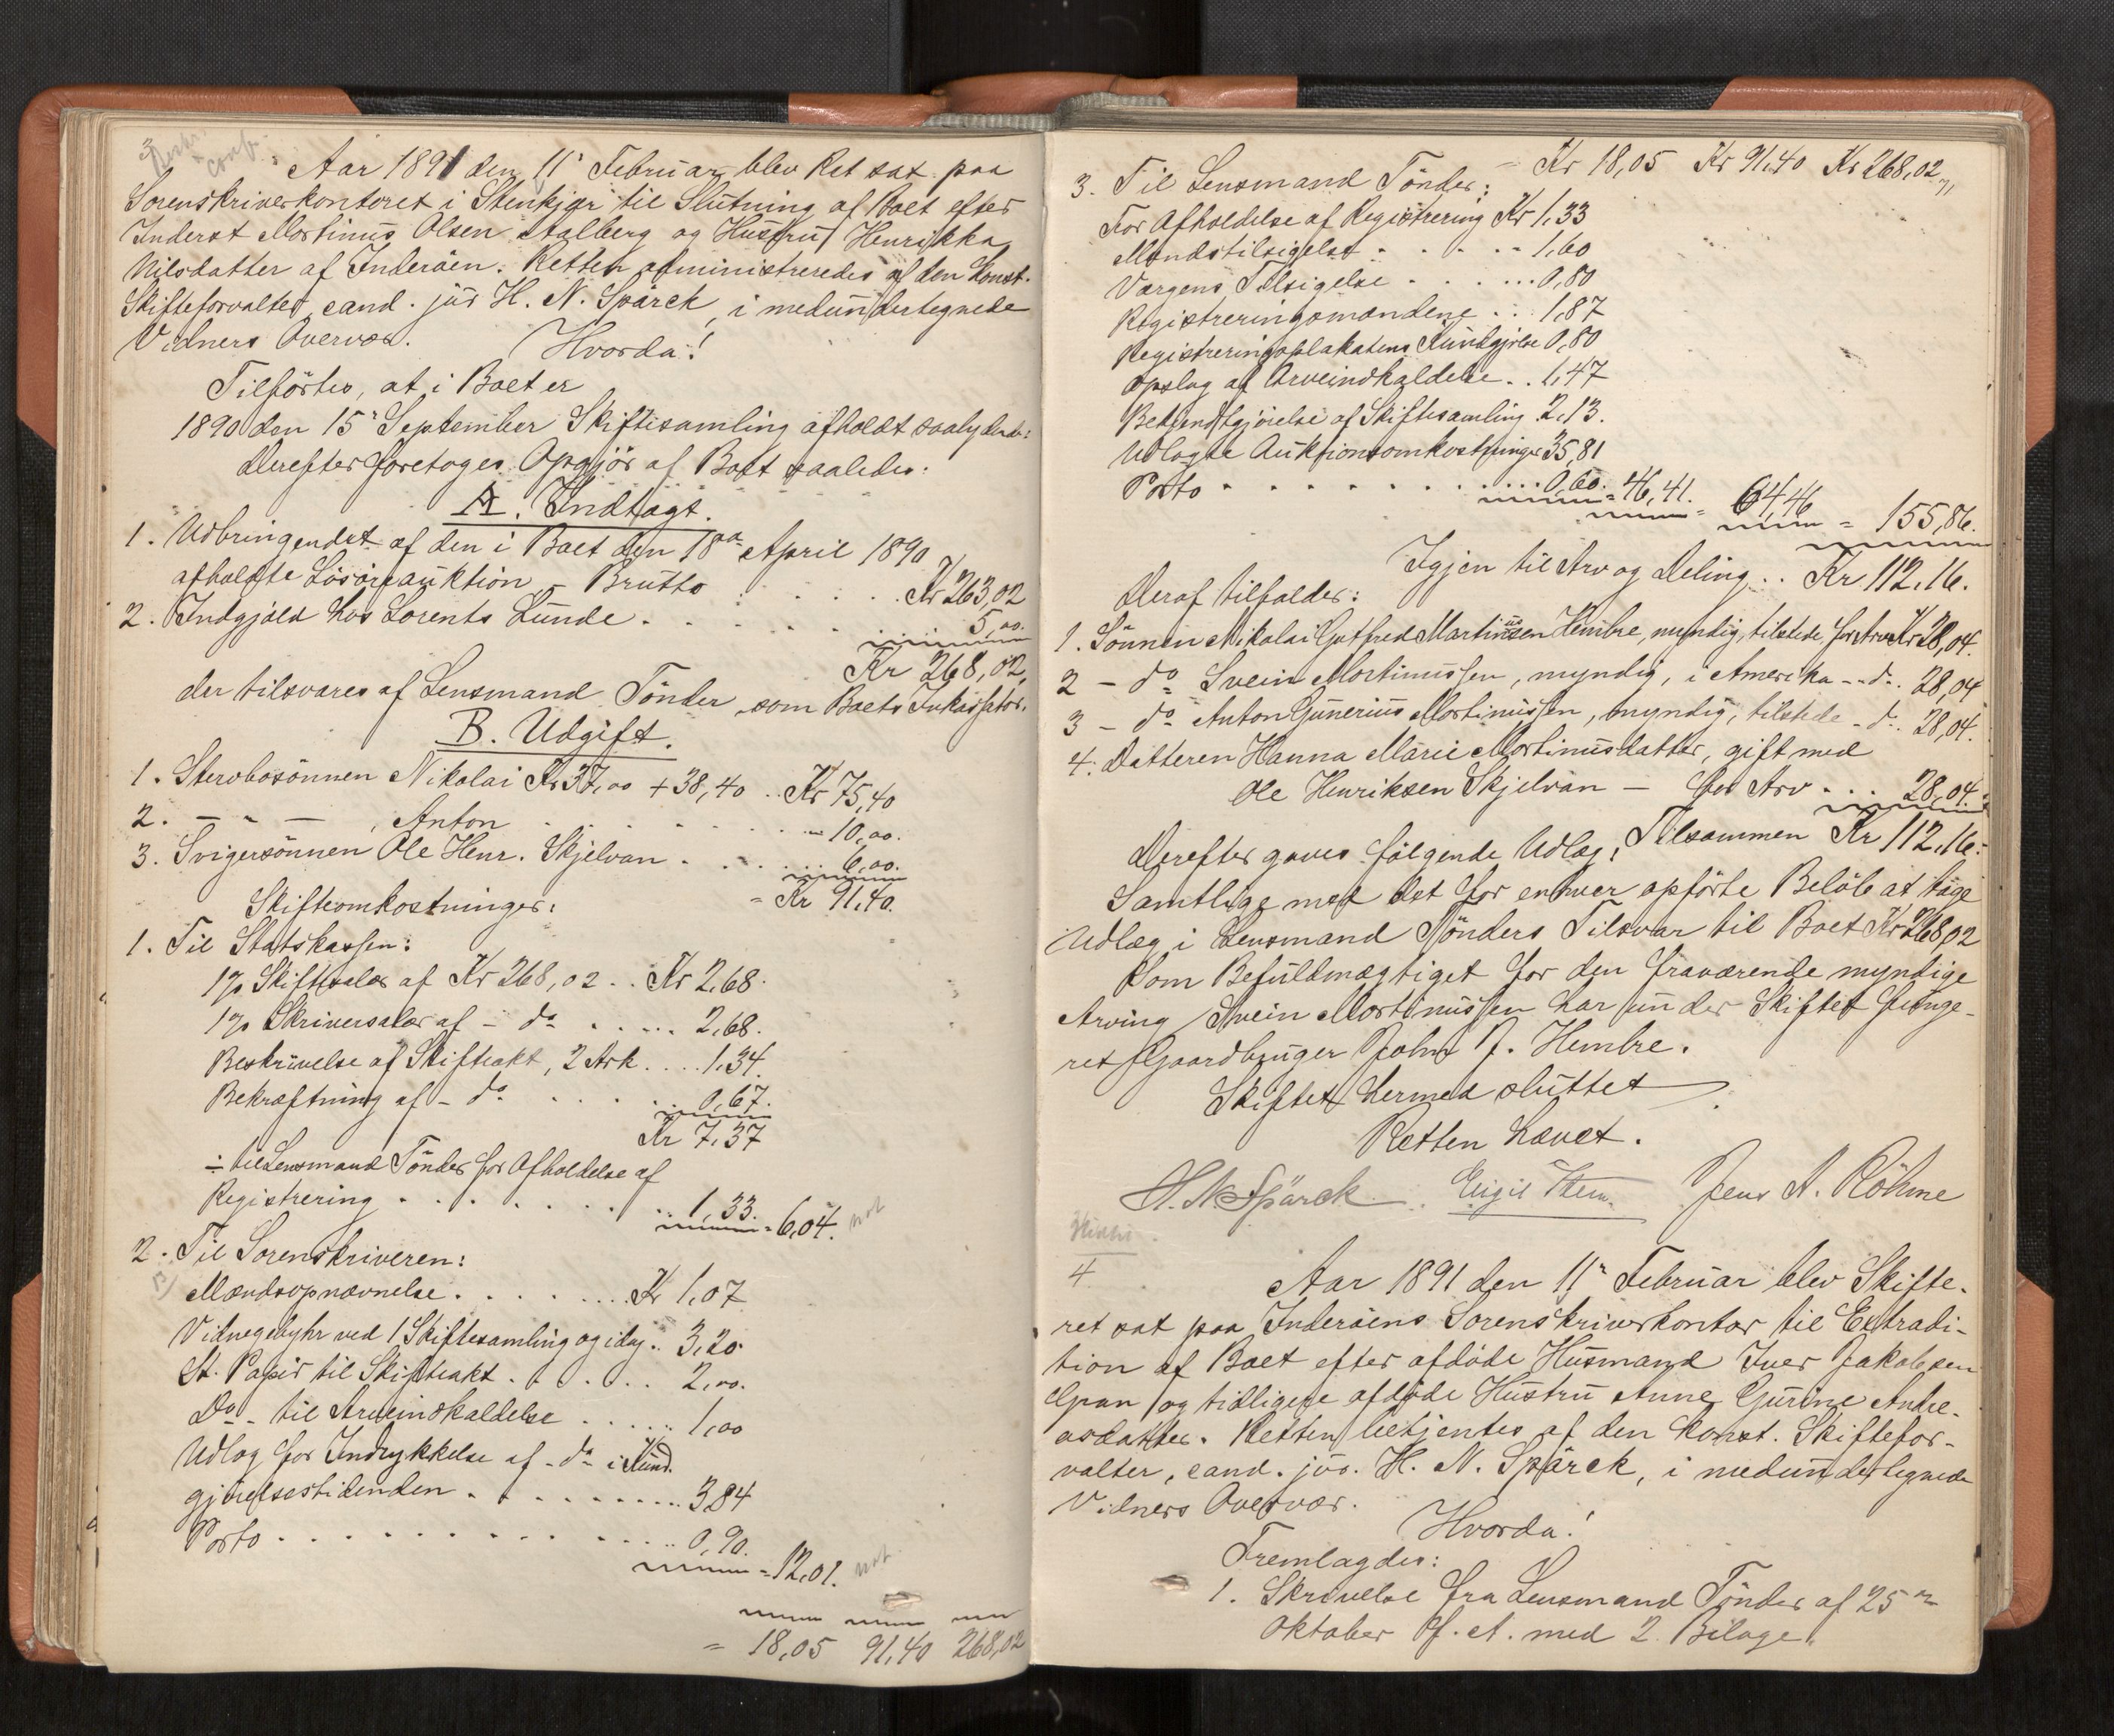 3
Aar 1891 den 11' Februar blev Ret sat paa
Sorenskriverkontoret i Stenkjær til Slutning af Boet efter
Inderst Mortinus Olsen Aalberg og Hustru Henrikka
Nilsdatter af Inderøen. Retten administreredes af den konst.
Skifteforvalter, cand. jur H. N. Spärck, i medundertegnede
Vidners Overvær.
Hvorda!
Tilførtes, at i Boet er
1890 den 15' September Skiftesamling afholdt saalydende:
Derefter foretoges Opgjør af Boet saaledes:
A. Indtægt.
1. Udbringendet af den i Boet den 18de April 1890
afholdte Løsøreauktion - Brutto . . . . . Kr 263,02
2. Indgjæld hos Lorents Lunde . . . . . 5,00.
Kr 268,02,
der tilsvares af Lensmand Tönder som Boets Inkassator.
B. Udgift.
1. Stervbosönnen Nikolai Kr 37,00 + 38,40 .. Kr 75,40
2. — " — , Anton . . . . . . . . — 10,00.
3. Svigersönnen Ole Henr. Skjelvan . . . . . 6,00.
= Kr 91,40.
Skifteomkostninger:
1. Til Statskassen:
1% Skiftesalær af Kr 268,02 . . Kr 2,68.
1% Skriversalær af - do . . . . . 2,68.
Beskrivelse af Skifteakt, 2 Ark . . . . 1,34.
Bekræftning af - do . . . . . . 0,67.
Kr 7,37
÷ til Lensmand Tönder for Afholdelse af
Registrering . . . . . . . . . . 1,33. = 6,04. not
2. Til Sorenskriveren:
Mændsopnævnelse . . . . . . . . Kr 1,07
Vidnegebyhr ved 1 Skiftesamling og idag . . 3,20.
St. Papir til Skifteakt . . . . . . 2,00.
Do - til Arveindkaldelse . . . . . 1,00
Udlæg for Indrykkelse af - do i Kund-
gjørelsestidenden . . . . . . . . . 3,84
Porto . . . . . . . . . . . . . 0,90.
= 12,01. not
= 18,05 91,40 268,02
- Kr 18,05 Kr 91,40 Kr 268,02
3. Til Lensmand Tönder:
For Afholdelse af Registrering Kr 1,33
Mændstilsigelse . . . . . - 1,60
Værgens Tilsigelse . . . . . . 0,80
Registreringsmændene . . . 1,87
Registreringsplakatens Kundgjörelse 0,80
Opslag af Arveindkaldelse . . 1,47
Bekjendtgjörelse af Skiftesamling . 2,13.
Udlagte Auktionsomkostninger 35,81
Porto . . . . . . . . . . . . 0,60. = 46,41. 64,46 = 155,86.
Igjen til Arv og Deling . . Kr 112,16.
Deraf tilfalder:
1. Sönnen Nikolai Gotfred Martinussen Hembre, myndig, tilstede, for Arv Kr 28,04.
2 - do Svein Mortinussen, myndig, i Amerika - - do. 28,04
3 - do Anton Gunerius Mortinussen, myndig, tilstede - do. 28,04.
4. Datteren Hanna Marie Mortinusdatter, gift med
Ole Henriksen Skjelvan — for Arv . . . 28,04.
Tilsammen Kr 112,16.
Derefter gaves følgende Udlæg:
Samtlige med det for enhver opförte Belöb at tage
Udlæg i Lensmand Tönders Tilsvar til Boet Kr 268,02
Som Befuldmægtiget for den fraværende myndige
Arving Svein Mortinussen har under Skiftet funge-
ret Gaardbruger John J. Hembre.
Skiftet hermed sluttet.
Retten hævet.
H. N. Spärck. Jens A. Röhme
4
Aar 1891 den 11" Februar blev Skifte-
ret sat paa Inderøens Sorenskriverkontor til Extradi-
tion af Boet efter afdøde Husmand Iver Jakobsen
Gran og tidligere afdøde Hustru Anne Gurine Andre-
asdatter. Retten betjentes af den konst. Skiftefor-
valter, cand. jur. H. N. Spärck, i medundertegnede
Vidners Overvær.
Hvorda!
Fremlagdes:
1. Skrivelse fra Lensmand Tönder af 25de
Oktober f. A. med 2 Bilage.